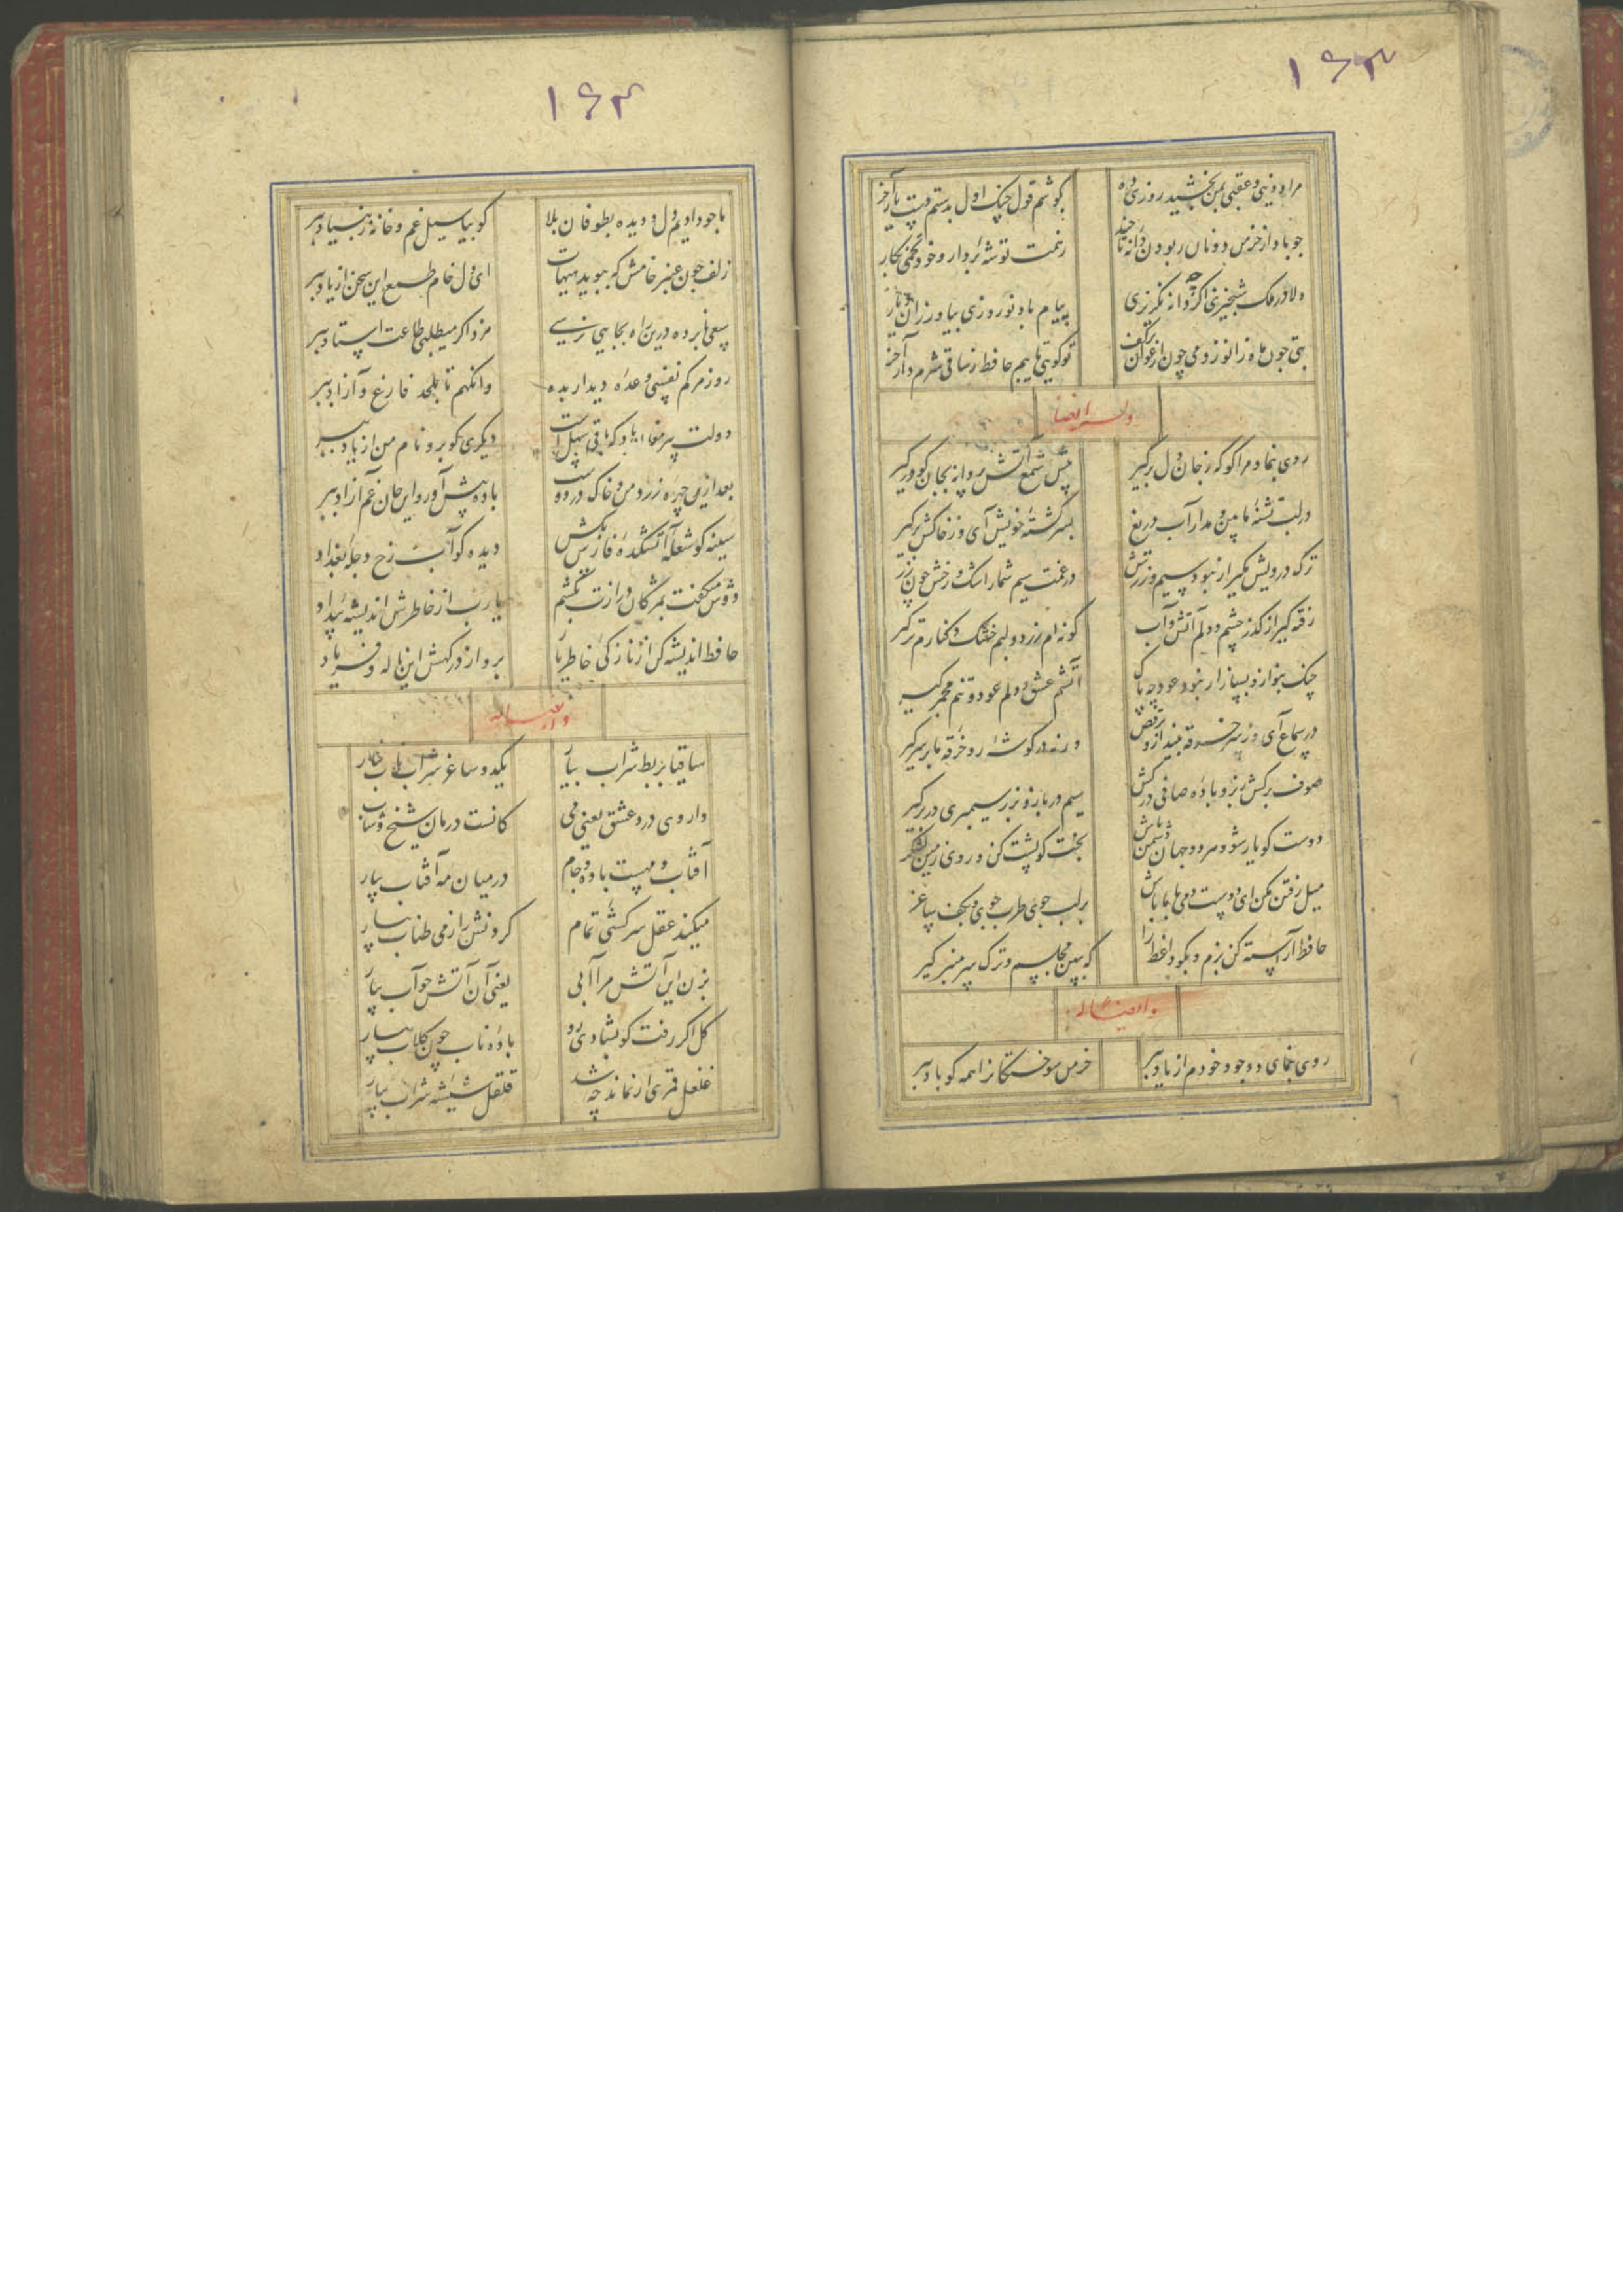 ۱۶۳
مرا دنیی و عقبی بمن بخشید روزی ده بگوشم قول چنگ اول بدستم زلف یار آخر
چو باد از خرمن دونان ربودن دانه تا چند ز همت توشه بردار و خود تخمی بکار آخر
دلا در ملک شبخیزی اگر نگریزی پیام باد نوروزی بیاورزان
بتی چون ماه زانو زد می چون ارغوان بر کف تو گویی تایبم حافظ ز ساقی شرم دار آخر
وله ایضا
روی بنما و مرا گو که ز جان دل برگیر پیش شمع آتش پروانه بجان گو درگیر
در لب تشنهٔ ما بین و مدار آب دریغ بر سر کشتهٔ خویش آی و ز خاکش برگیر
ترک درویش مگیر ار نبود سیم و زرش در غمت سیم شمار اشک و رخش چون زر گیر
رفته گیر از کذر چشم و دلم آتش و آب گونه ام زرد و لبم خشک و کنارم تر گیر
چنگ بنواز و بساز ار نبود عود چه باک آتشم عشق و دلم عود و تنم مجمر گیر
در سماع آی و ز سر خرقه بینداز و برقص ورنه در گوشه رو و خرقه ما بر سر گیر
صوف برکش ز بر و بادهٔ صافی درکش سیم در باز و بزر سیمبری در بر گیر
دوست گو یار شو و هر دو جهان دشمن باش بخت گو پشت کن و روی زمین لشکر گیر
میل رفتن مکن ای دوست دمی با ما باش بر لب جوی طرب جوی و بکف ساغر گیر
حافظ آراسته کن بزم و بگو واعظ را که ببین مجلسم و ترک سر منبر گیر
وایضا له
روی بنمای و وجود خودم از یاد ببر خرمن سوختگانرا همه گو باد ببر
۱۶۴
ما چو دادیم دل و دیده بطوفان بلا گو بیا سیل غم و خانه ز بنیاد ببر
زلف چون عنبر خامش که ببوید هیهات ای دل خام طمع این سخن از یاد ببر
سعی نابرده درین راه بجایی نرسی مزد اگر میطلبی طاعت استاد ببر
روز مرگم نفسی وعدهٔ دیدار بده وانگهم تا بلحد فارغ و آزاد ببر
دولت پیر مغان باد که باقی سهل است دیگری گو برو نام من از یاد ببر
بعد ازین چهره زرد من و خاک در دوست باده پیش آور و این جان غم آزاد ببر
سینه گو شعله آتشکدهٔ فارس بکش دیده گو آب رخ دجله بغداد
دوش میگفت بمژگان درازت بکشم یا رب از خاطرش اندیشهٔ بیداد
حافظ اندیشه کن از نازکی خاطر یار برو از درگهش این ناله و فریاد
وایضا له
ساقیا بربط شراب بیار یکدو ساغر شراب ناب بیار
داروی درد عشق یعنی می کانست درمان شیخ و شاب
آفتاب و مهست باده و جام در میان مه آفتاب بیار
میکند عقل سرکشی تمام گردنش را ز می طناب بیار
بزن این آتش مرا آبی یعنی آن آتش چو آب بیار
گل اگر رفت گو بشادی رو بادهٔ ناب چون گلاب بیار
غلغل قمری ار نماند چه شد قلقل شیشه شراب بیار